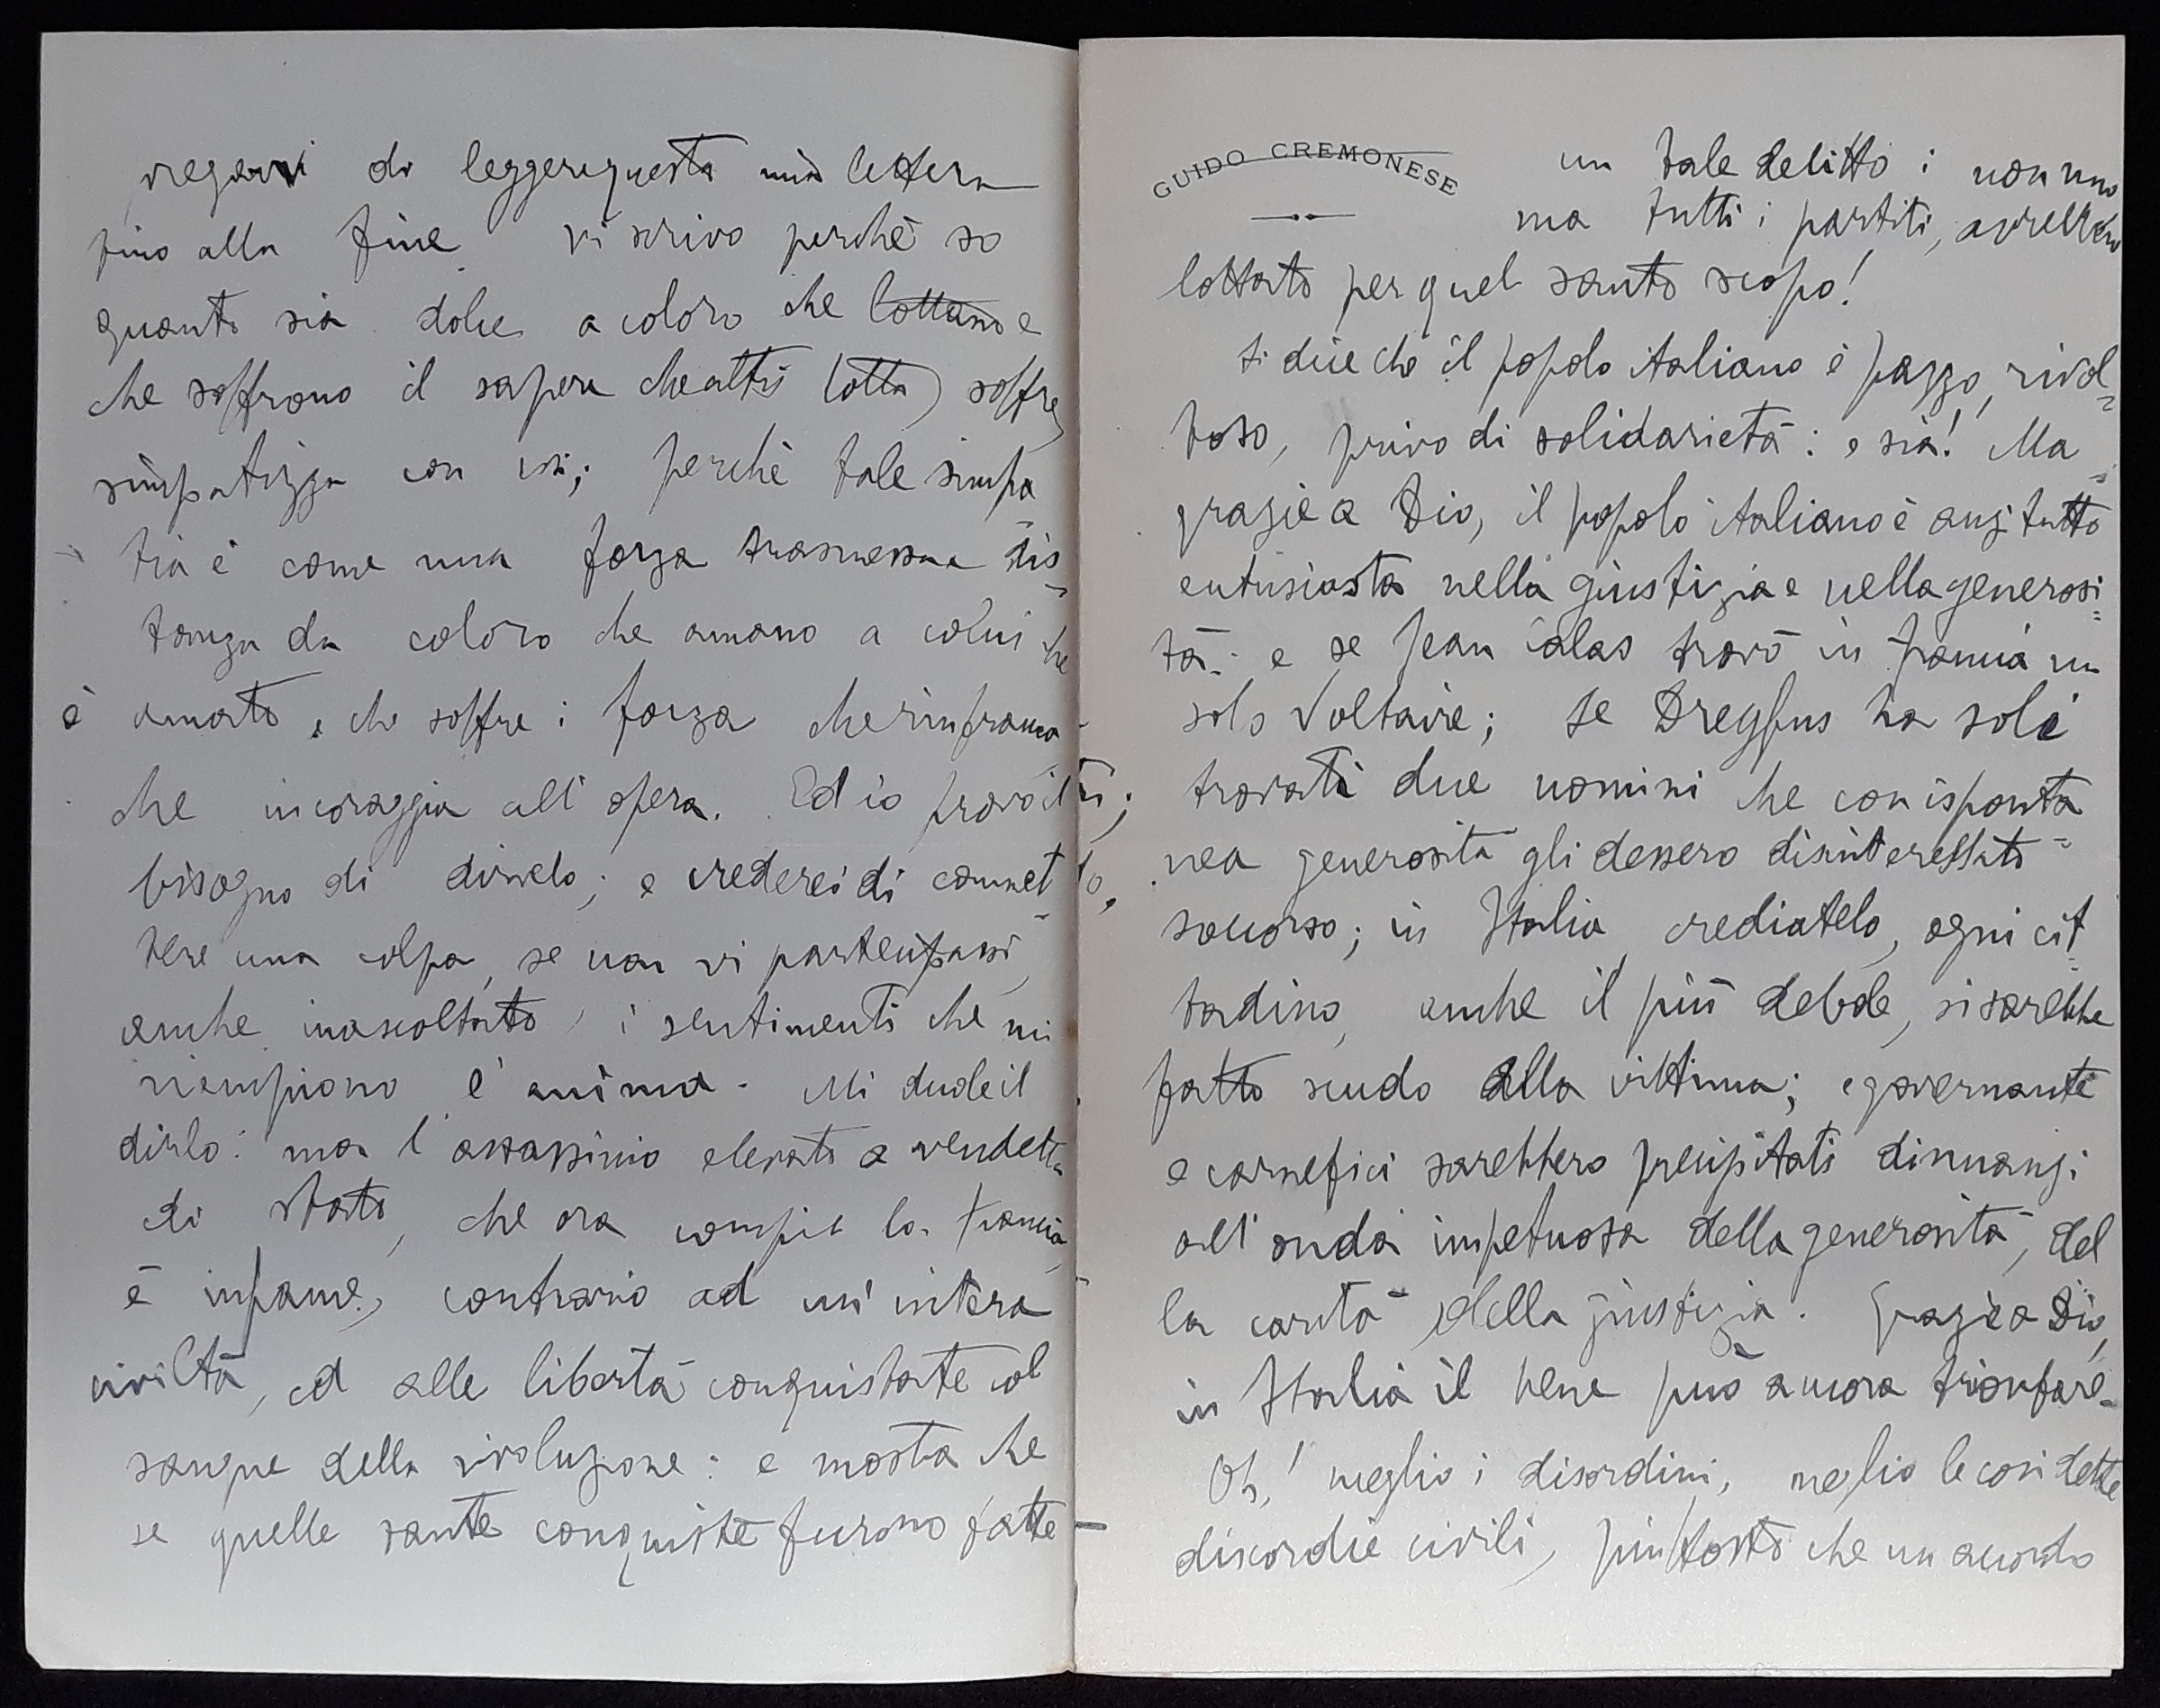 pregarvi di leggere questa mia lettera
fino alla fine. Vi scrivo perchè so
quanto sia dolce a coloro che lottano e
che soffrono il sapere che altri lotta, soffre,
simpatizza con essi; perchè tale simpa
tia è come una forza trasmessa dis=
tanza da coloro che amano a colui che
è amato e che soffre: forza che rinfranca
che incoraggia all'opera. Ed io provo il
bisogno di dirvelo; e crederei di commet=
tere una colpa, se non vi partecipassi,
anche inascoltato, i sentimenti che mi
riempiono l'anima. Mi duole il
dirlo: ma l'assassinio elevato a vendetta
di Stato, che ora compie la Francia,
è infame, contrario ad un'intera
civiltà, ed alle libertà conquistate col
sangue della rivoluzione: e mostra che
se quelle sante conquiste furono fatte
GUIDO CREMONESE
un tale delitto: non uno
ma tutti i partiti, avrebbero
lottato per quel santo scopo!
Si dice che il popolo italiano è pazzo, rivol=
toso, privo di solidarietà: e sia! Ma
grazie a Dio, il popolo italiano è anzitutto
entusiasta nella giustizia e nella generosi=
tà: e se Jean Calas trovò in Francia un
solo Voltaire; se Dreyfus ha soli
trovati due uomini che con isponta=
nea generosità gli dessero disinteressato
soccorso; in Italia, crediatelo, ogni cit=
tadino, anche il più debole, si sarebbe
fatto scudo alla vittima; e governante
e carnefici sarebbero precipitati dinnanzi
all'onda impetuosa della generosità, del
la carità, della giustizia. Grazie a Dio,
in Italia il bene può ancora trionfare.
Oh! meglio i disordini, meglio le cosi dette
discordie civili, piuttosto che un accordo